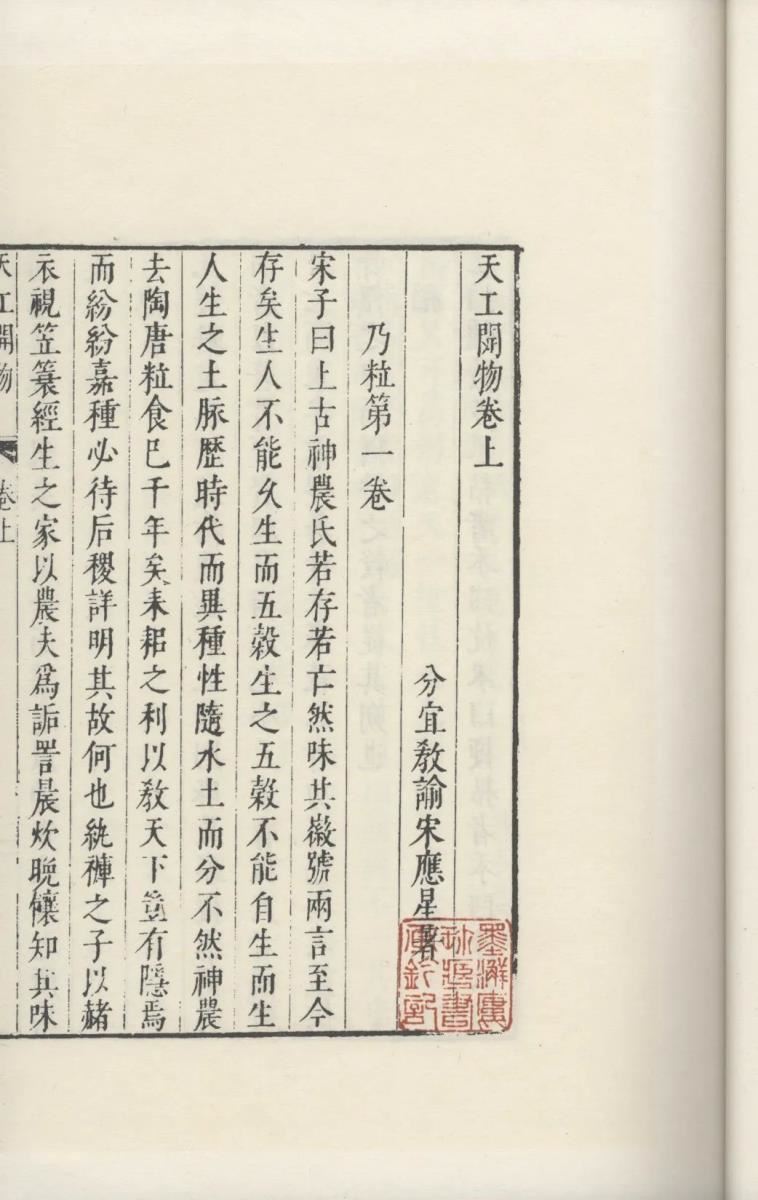 天工開物卷上
分宜教諭宋應星著
乃粒第一卷
宋子曰上古神農氏若存若亡然味其徽號兩言至今
存矣生人不能久生而五穀生之五穀不能自生而生
人生之土脉歷時代而異種性隨水土而分不然神農
去陶唐粒食已千年矣耒耜之利以敎天下豈有隱焉
而紛紛嘉種必待后稷詳明其故何也紈褲之子以赭
衣視笠簑經生之家以農夫爲詬詈晨炊晚饟知其味
天工開物
卷上